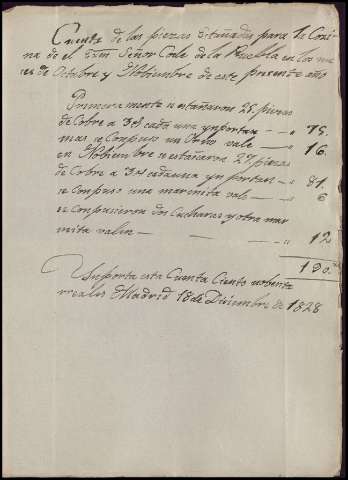 Cuenta de las piezas estañadas para la Coci-
na de el Exmo Señor Code de la Puebla en los me
ses de Octubre y Nobiembre de este presente año
Primera mente se estañaron 25 piezas
de Cobre a 3 cada una ynportan — 75.
mas se conpuso un vale — 16.
en Nobiembre se estañaron 27 piezas
de Cobre a 3 cada una ynportan — 81.
se conpuso una marmita vale — 6
se conpusieron dos Cucharas y otra mar
mita valen — 12
190.
Ynporta esta Cuenta Ciento nobenta
reales Madrid 18 de Diciembre de 1828